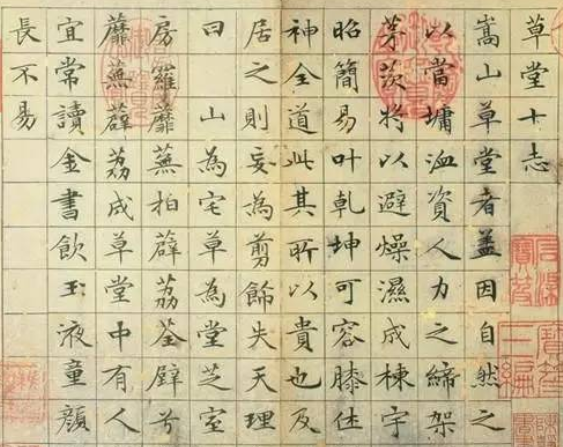 草堂十志
嵩山草堂者盖因自然之
以當墉洫資人力之締架
茅茨将以避燥濕成棟宇
昭簡易叶乾坤可容膝休
神全道此其所以貴也及
居之則妄為剪飾失天理
曰 山為宅草為堂芝室
房羅蘼蕪拍薜荔荃壁兮
蘼蕪薜荔成草堂中有人
宜常讀金書飲玉液童顏
長不易